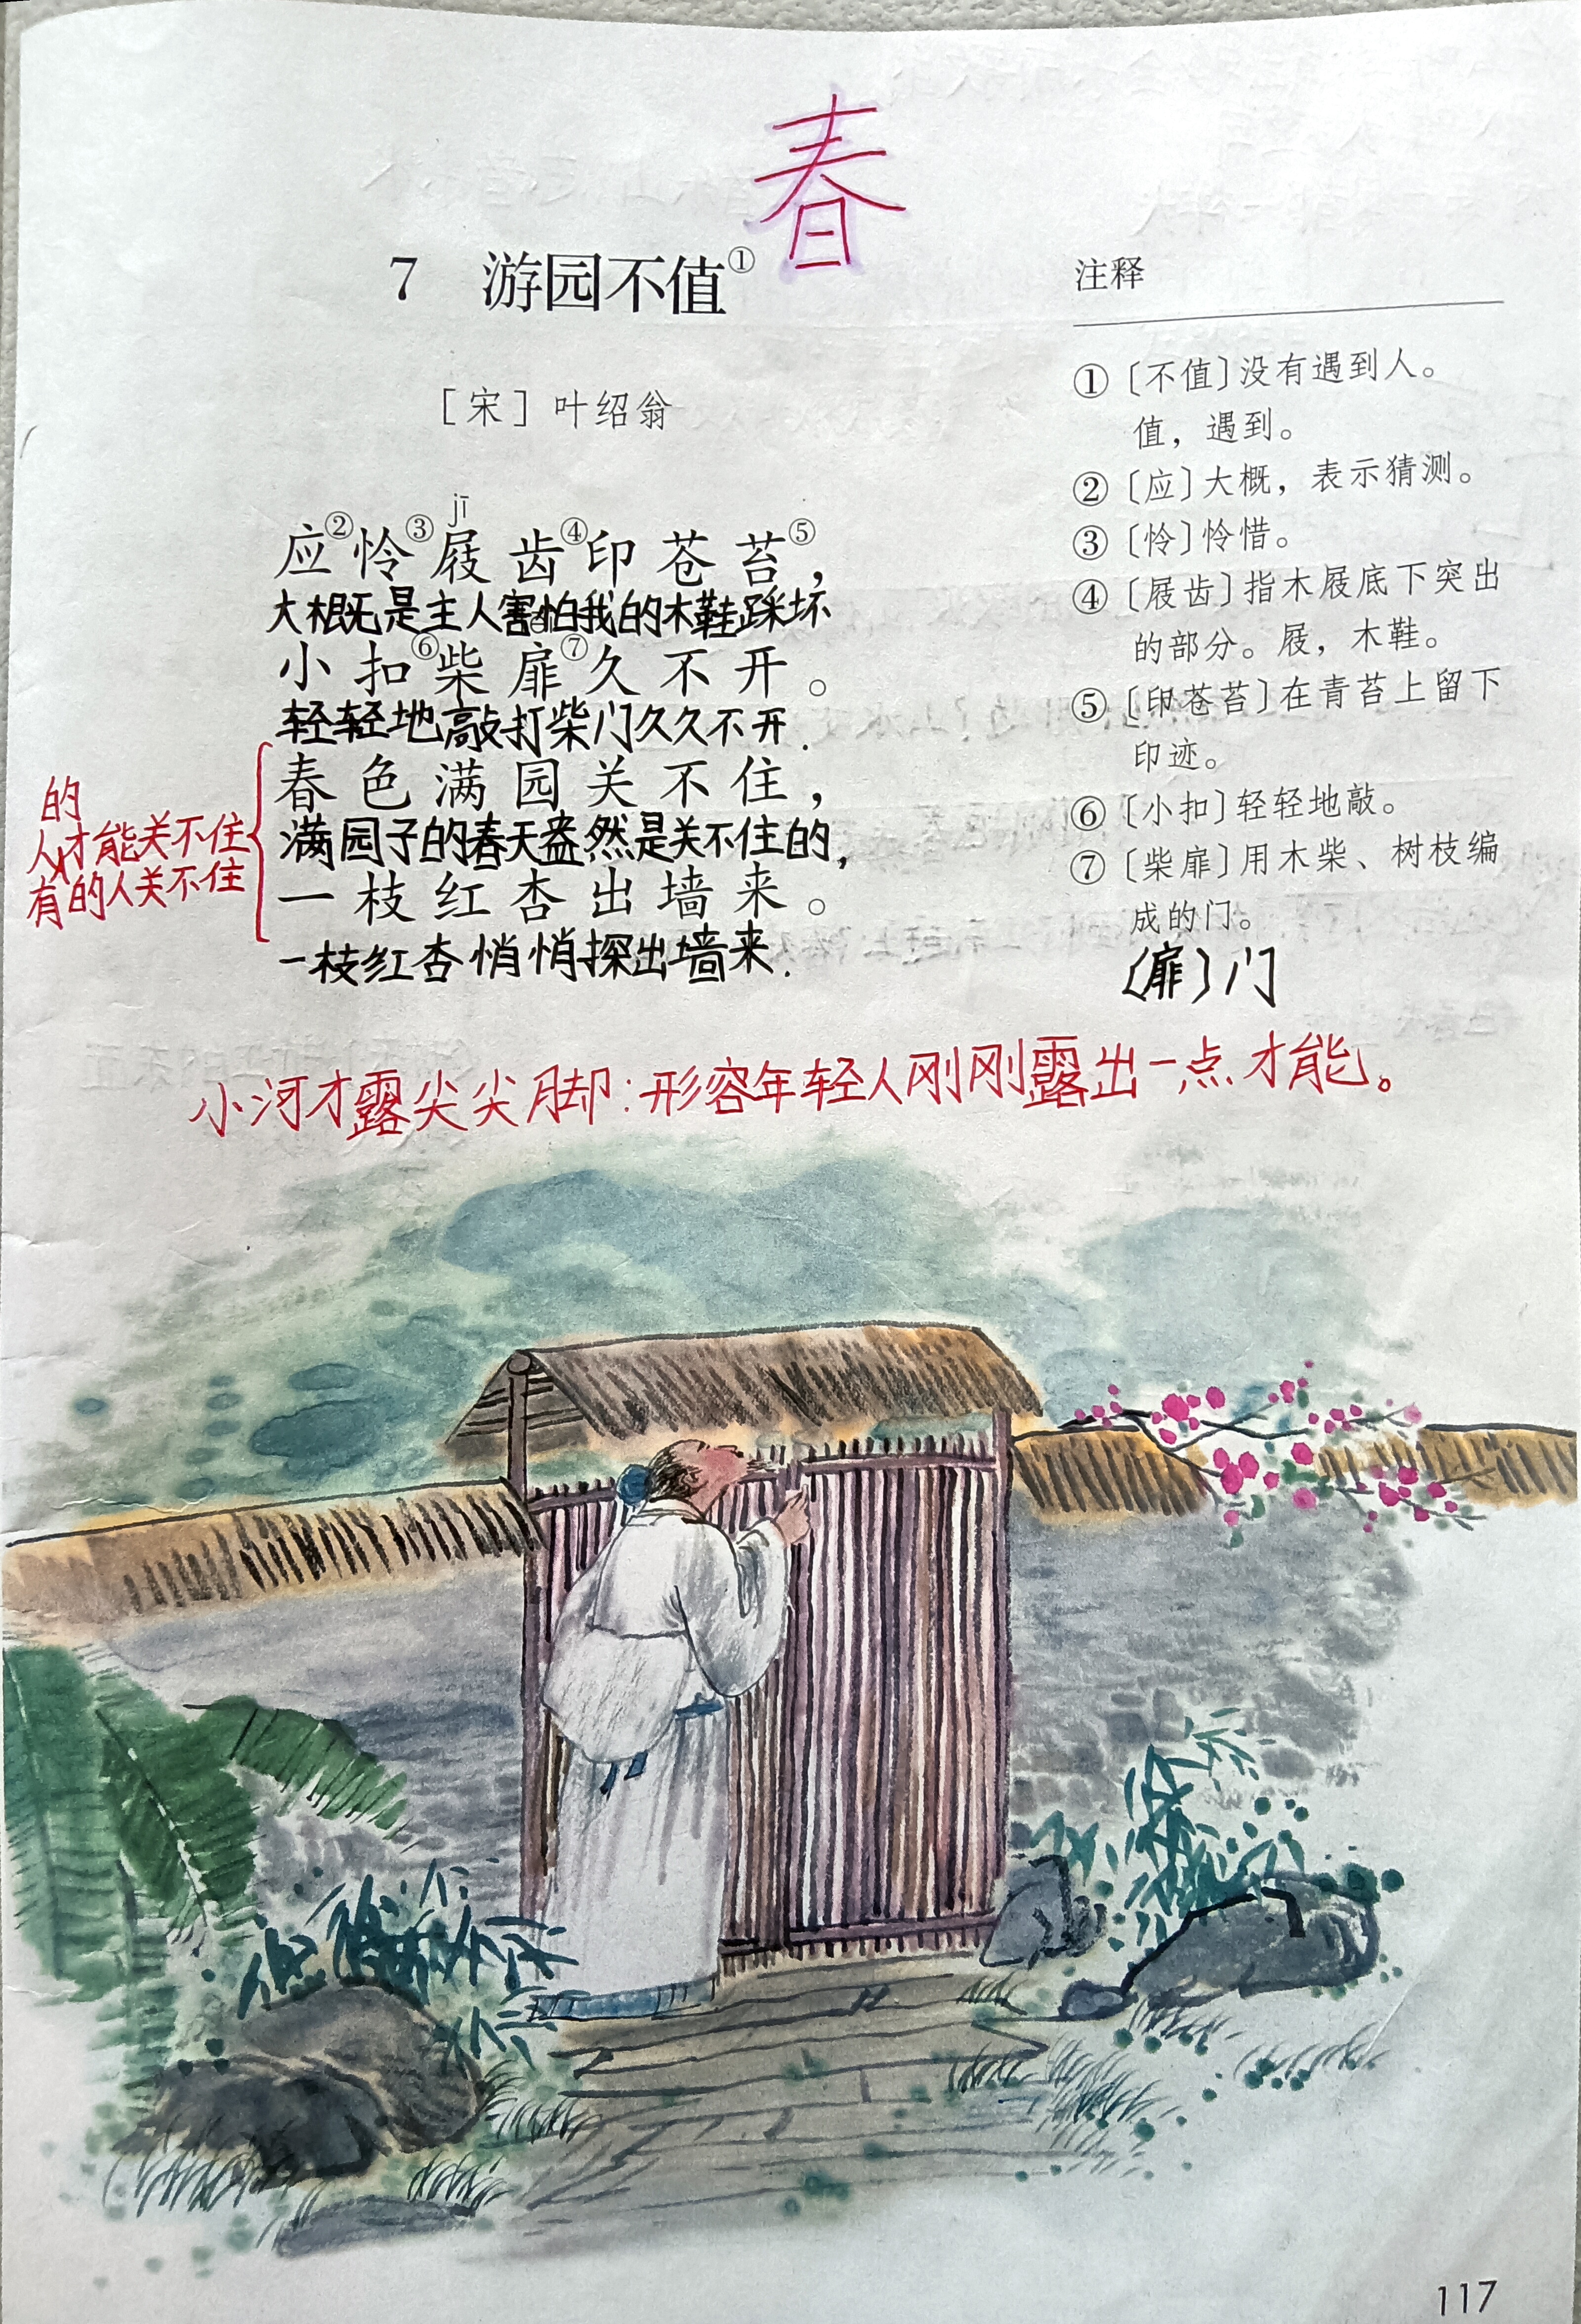 春
7 游园不值①
[宋] 叶绍翁
jī
应②怜③屐齿④印苍苔⑤，
大概是主人害怕我的木鞋踩坏
小扣⑥柴扉⑦久不开。
轻轻地敲打柴门久久不开.
春色满园关不住，
满园子的春天盎然是关不住的,
一枝红杏出墙来。
一枝红杏悄悄探出墙来.
的
人才能关不住
有的人关不住
注释
①〔不值〕没有遇到人。
值，遇到。
②〔应〕大概，表示猜测。
③〔怜〕怜惜。
④〔屐齿〕指木屐底下突出
的部分。屐，木鞋。
⑤〔印苍苔〕在青苔上留下
印迹。
⑥〔小扣〕轻轻地敲。
⑦〔柴扉〕用木柴、树枝编
成的门。
〔扉〕门
小河才露尖尖脚:形容年轻人刚刚露出一点才能。
117